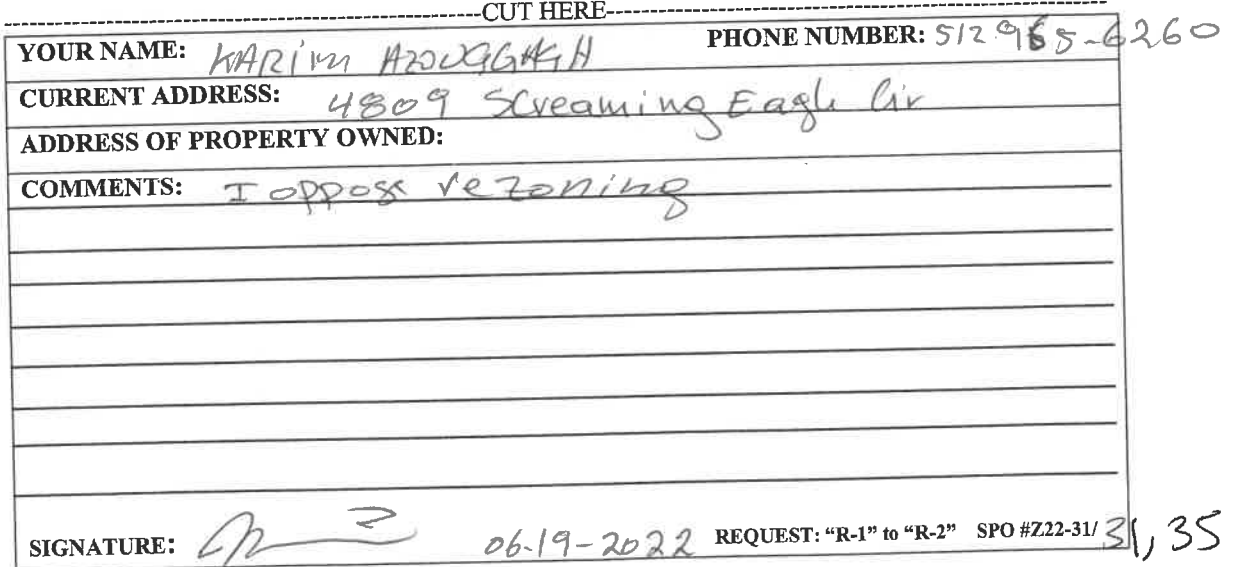 CUT HERE
YOUR NAME: KARIM AZOUGGAGH PHONE NUMBER: 512 965-6260
CURRENT ADDRESS: 4809 Screaming Eagle Cir
ADDRESS OF PROPERTY OWNED:
COMMENTS: I oppose rezoning
SIGNATURE: 06-19-2022 REQUEST: “R-1” to “R-2” SPO #Z22-31/ 31, 35